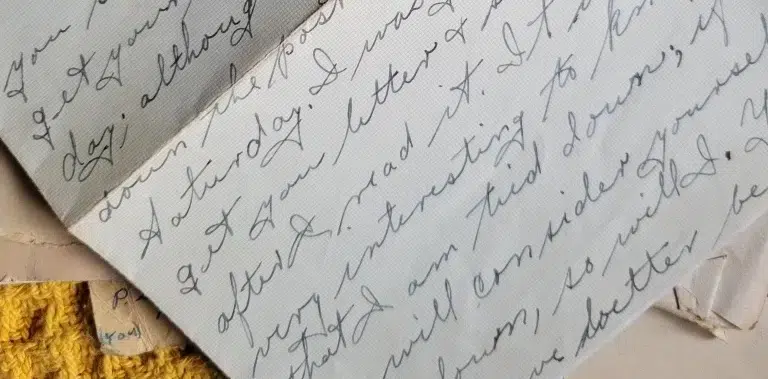 You
get your
day; although
down the post
Saturday. I was
get you letter &
after I read it. It
very interesting to
that I am tied down; if
will consider yourself
down, so will I.
doctter be
P.
(you)